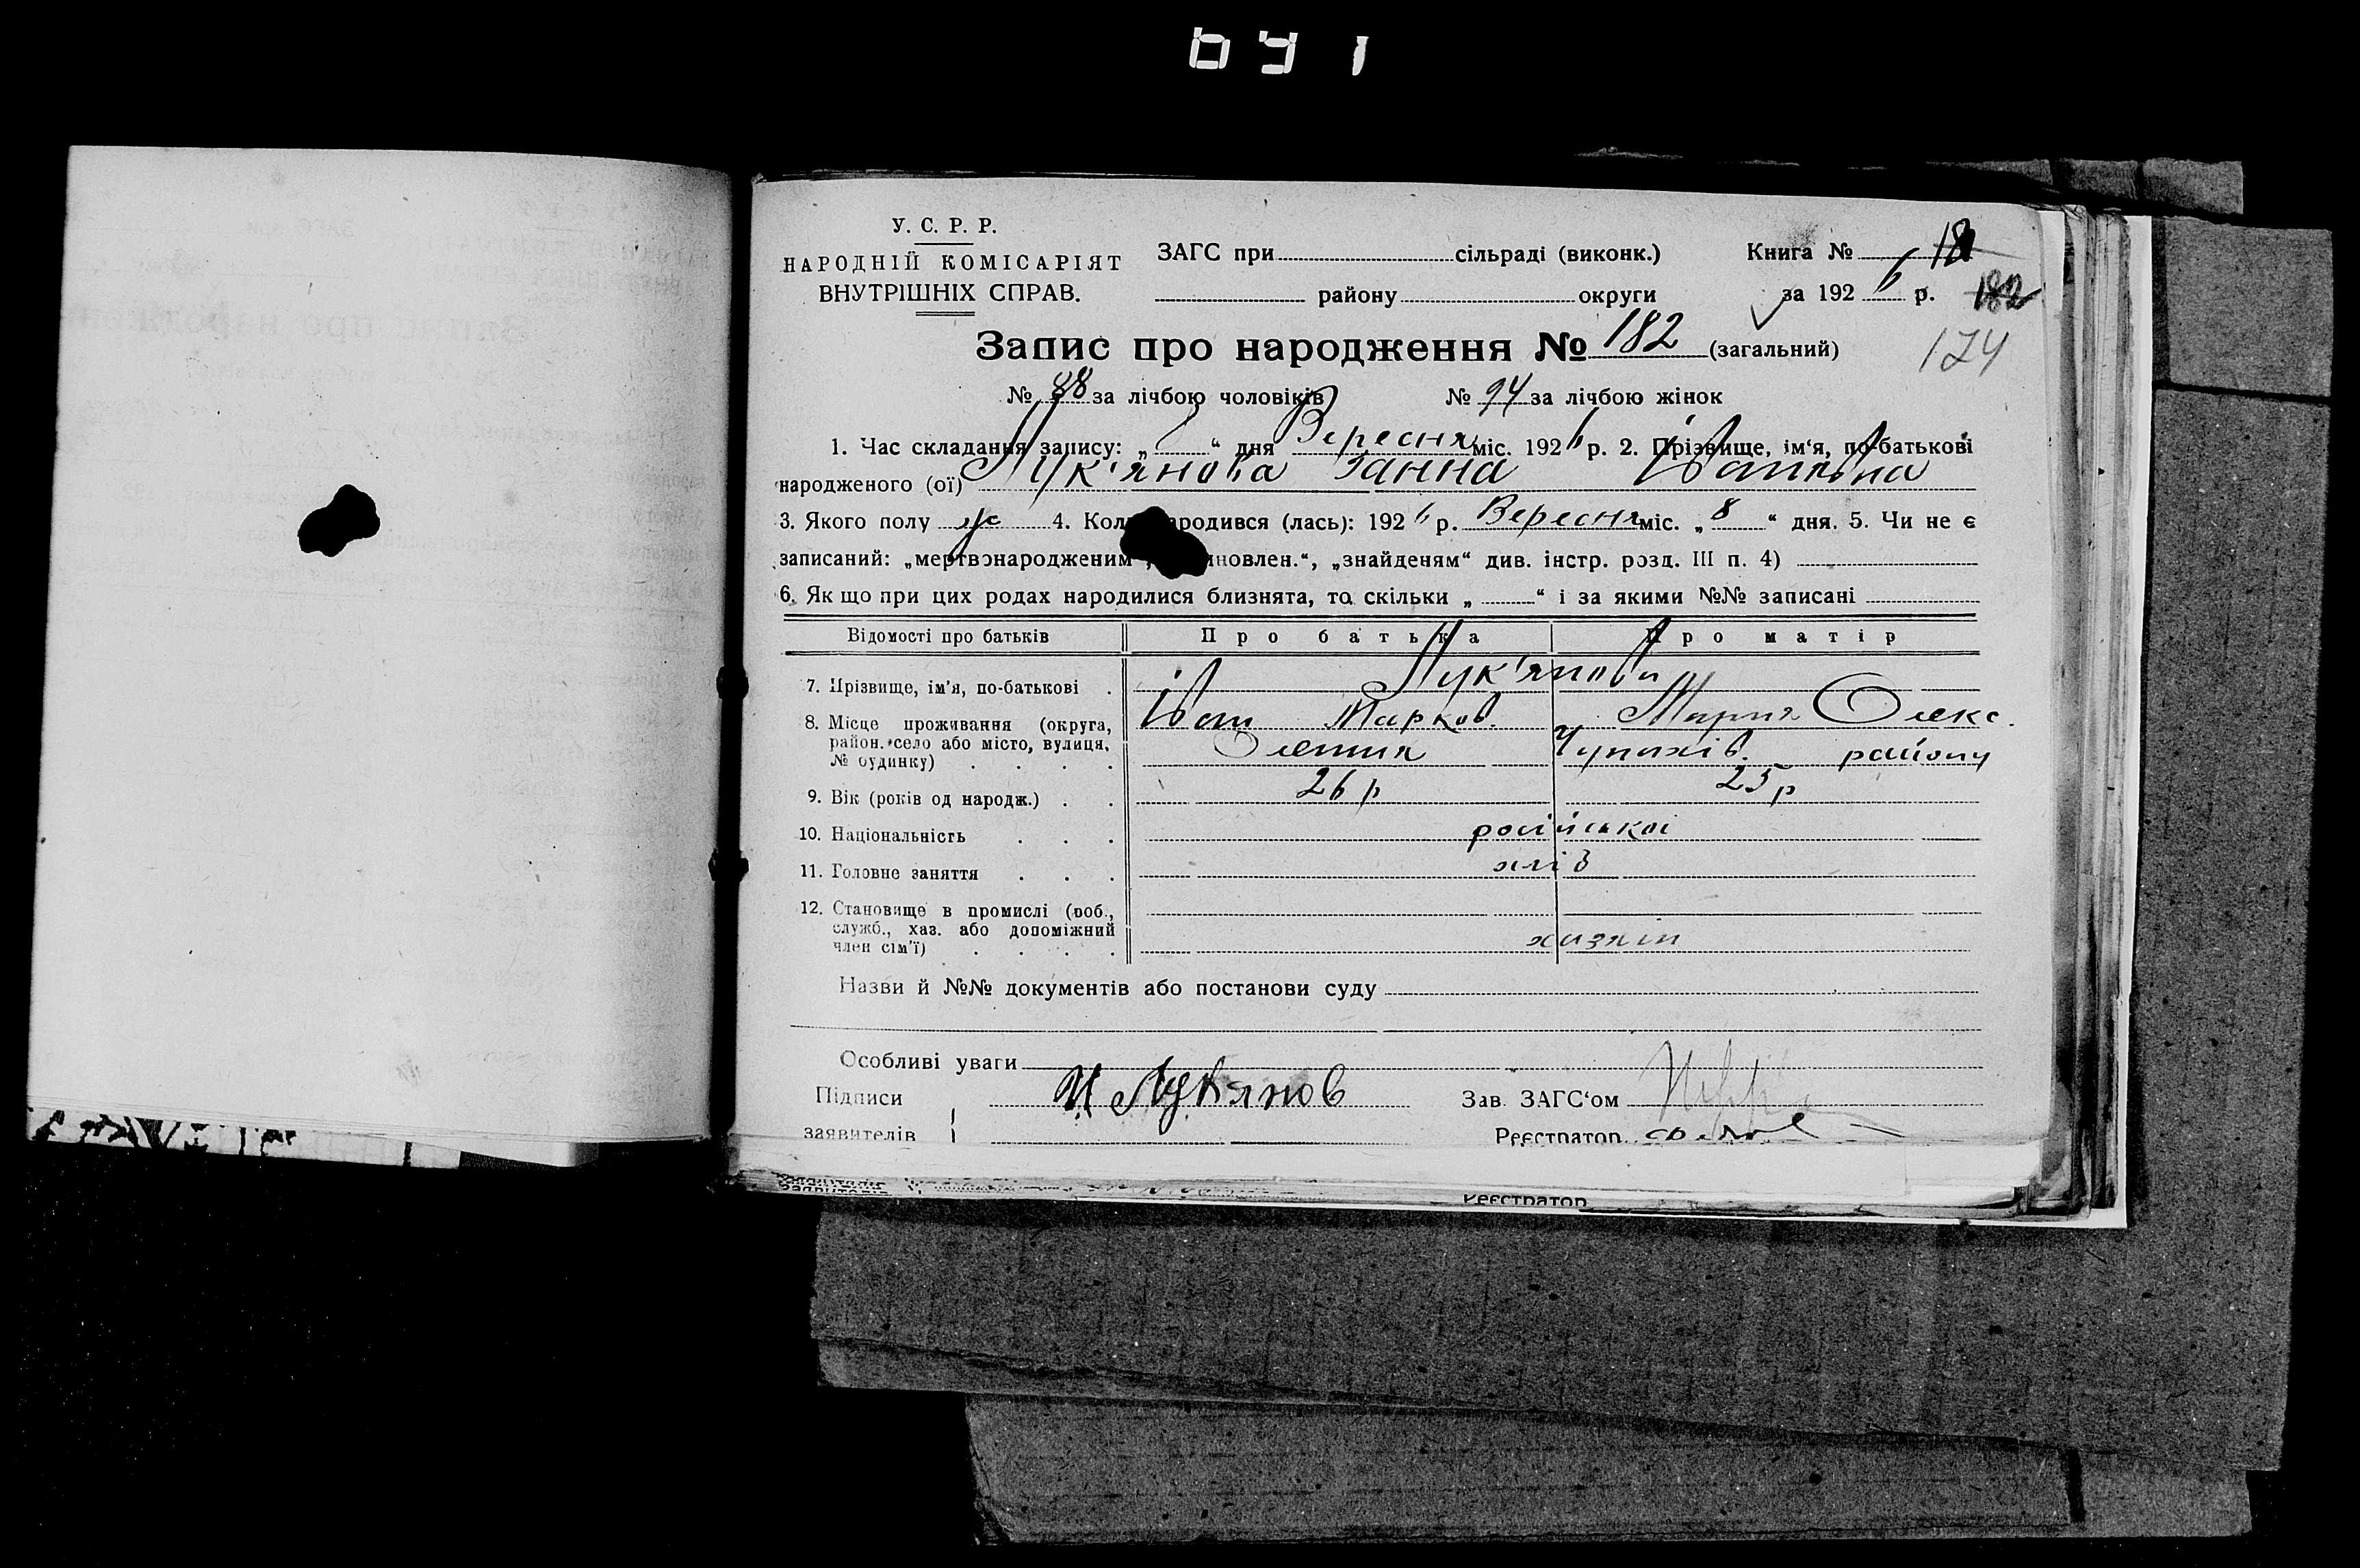 У. С. Р. Р.
НАРОДНІЙ КОМІСАРІЯТ
ВНУТРІШНІХ СПРАВ.
ЗАГС при сільраді (виконк.)
району округи
Книга №
за 192 6 р.
182
174
Запис про народження № 182 (загальний)
№ 88 за лічбою чоловіків № 94 за лічбою жінок
1. Час складання запису: „ 8 “ дня Вересня міс. 192 6 р. 2. Прізвище, ім‘я, по-батькові
народженого (ої) Лук'янова Ганна Іванівна
3. Якого полу ж 4. Коли народився (лась): 192 6 р. Вересня міс. „ 8 “ дня. 5. Чи не є
записаний: „мертвонародженим“, новлен.“, „знайденям“ див. інстр. розд. III п. 4)
6. Як що при цих родах народилися близнята, то скільки „ “ і за якими №№ записані
Відомості про батьків Про батька Про матір
7. Прізвище, ім'я, по-батькові . Лук'янови
8. Місце проживання (округа, Іван Марков. Мария Олекс.
район, село або місто, вулиця, Чупахів. району
№ будинку) . . . .
9. Вік (років од народж.) . . 26 р 25 р
10. Національність . . . російської
11. Головне заняття . . . хліб
12. Становище в промислі (роб.,
служб., хаз. або допоміжний
член сім'ї) . . . . хазяїн
Назви й №№ документів або постанови суду
Особливі уваги
Підписи И Лукянов Зав. ЗАГС‘ом
заявителів Реєстратор
Реєстратор